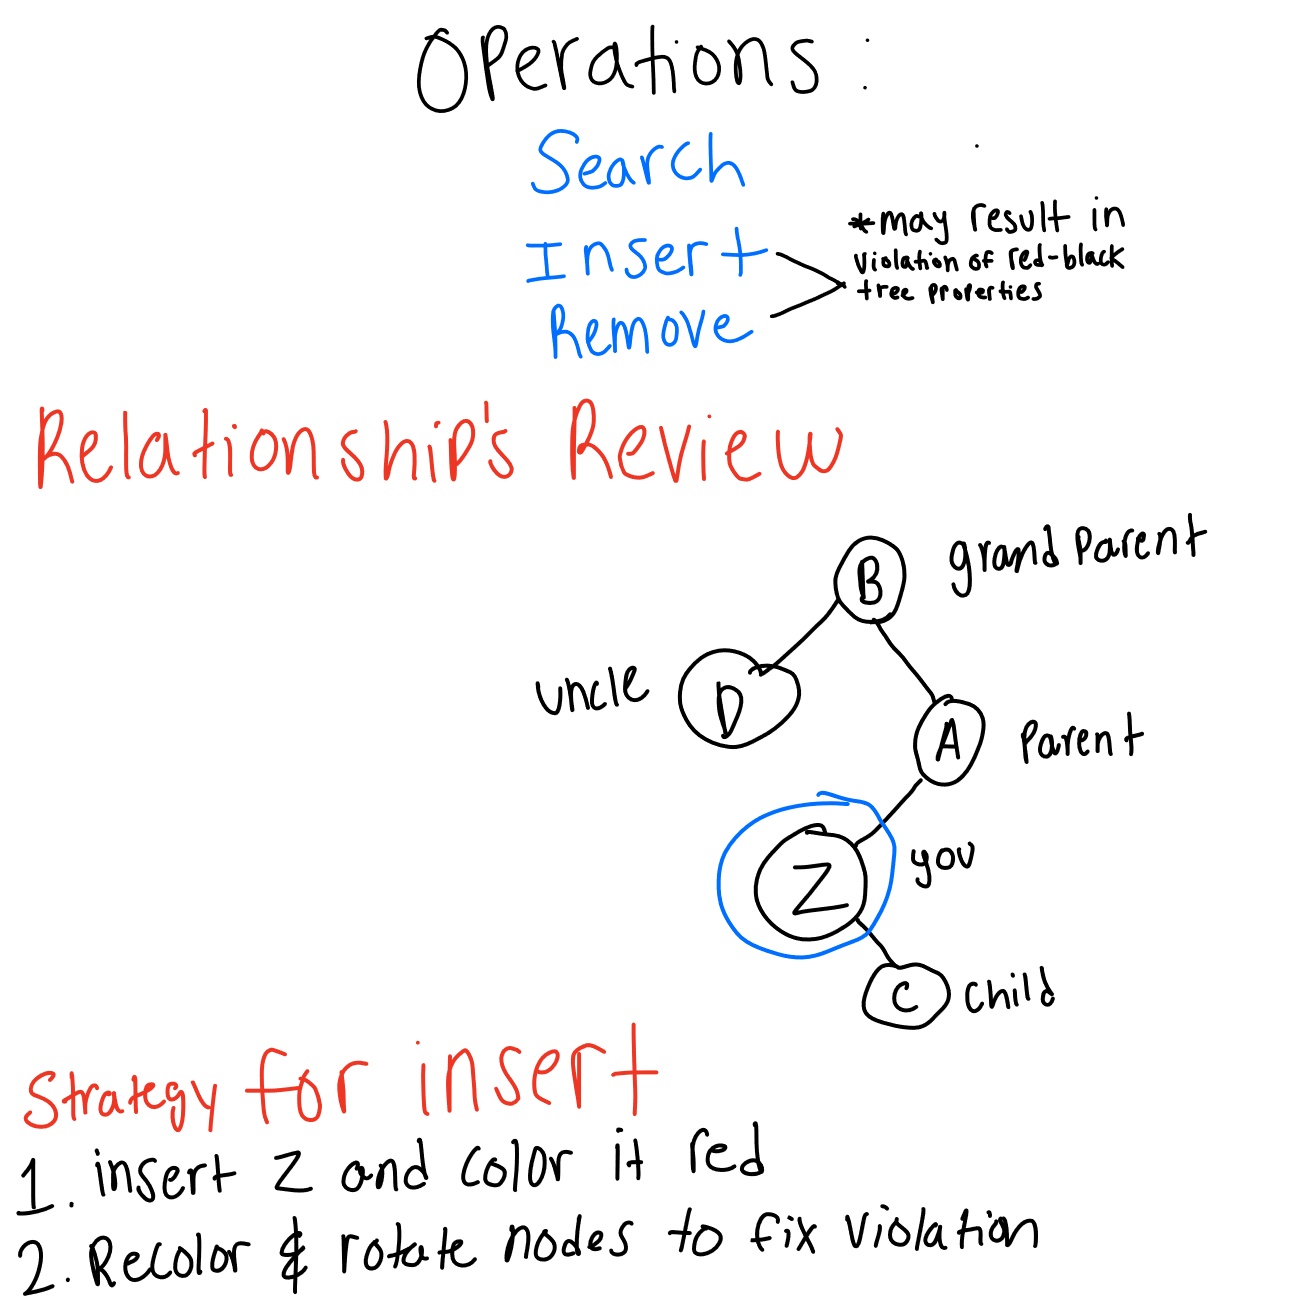 Operations :
Search
Insert
Remove
*may result in
violation of red-black
tree properties
Relationship's Review
B
grand parent
uncle
D
A
parent
Z
you
C
child
Strategy for insert
1. insert Z and color it red
2. Recolor & rotate nodes to fix violation